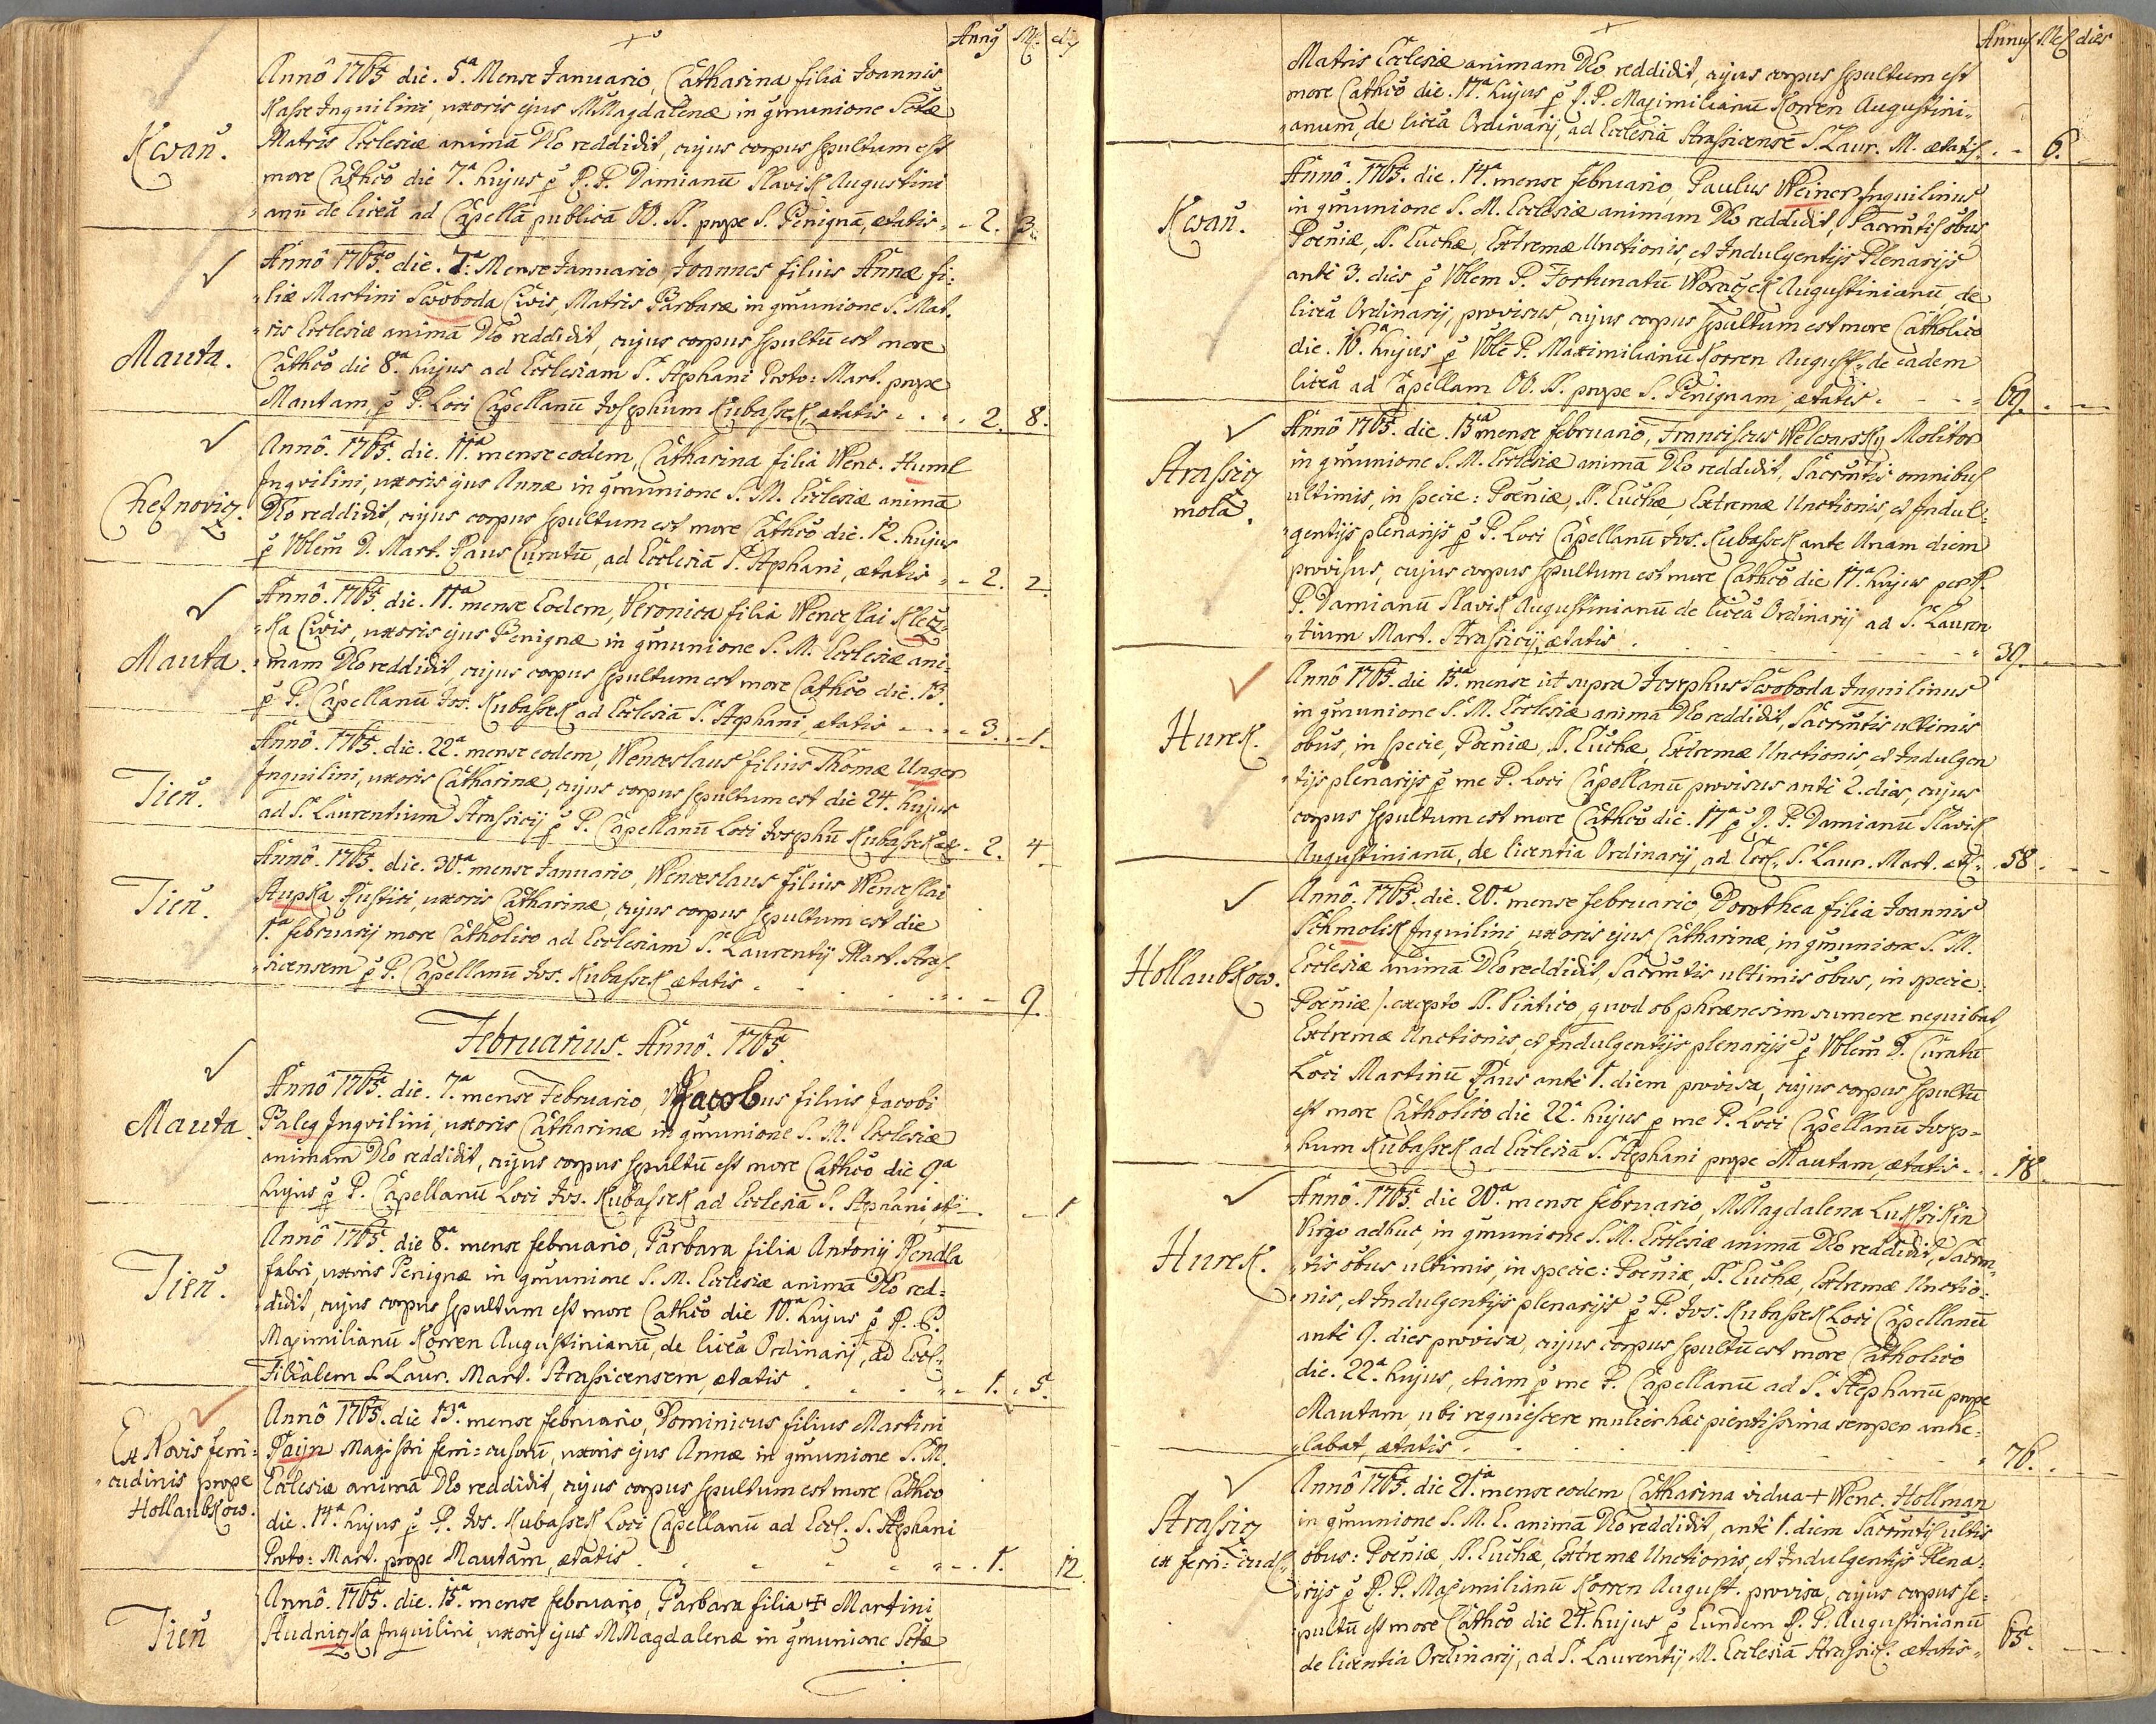 Annꝯ M. di
Kwan̄.
Annô 1765 die. 5ª Mense Januario, Catharina filia Joannis
Kasse Inquilini, uxoris ejus MMagdalenæ in ḡmunione Sctæ
Matris Ecclesiæ animā Deo reddidit, cujus corpus sepultum est
more Cathcô die 7ª hujus p̄ R. P. Damianū Slavik Augustini
anū de licēā ad Capellā publicā VV. SS. prope S. Benignā, ætatis - 2. 3.
Mauta.
Annô 1765. die. 7ª Mense Januario, Joannes filius Annæ fi:
liæ Martini Swoboda Civis, Matris Barbaræ in ḡmunione S. Mat.
ris Ecclesiæ animā Deo reddidit, cujus corpus sepultū est more
Cathcô die 8ª hujus ad Ecclesiam S. Stephani Proto: Mart. prope
Mautam, p̄ P. Loci Capellanū Josephum Kubassek, ætatis . . . 2. 8.
Chesnoviz.
Annô. 1765. die. 11ª mense eodem, Catharina filia Wenc. Huml
Inqvilini, uxoris ejus Annæ in ḡmunione S. M. Ecclesiæ animā
Deo reddidit, cujus corpus sepultum est more Cathcô die. 12. hujus
p̄ Vblem̄ D. Mart. Paus Curatū, ad Ecclesiā S. Stephani, ætatis - 2. 2.
Mauta.
Annô. 1765. die. 11ª mense Eodem, Veronica filia Wencellai Klecz-
Ka Civis, uxoris ejus Benignæ in ḡmunione S. M. Ecclesiæ ani-
mam Deo reddidit, cujus corpus sepultum est more Cathcô die. 13.
p̄ P. Capellanū Jos. Kubassek ad Ecclesiā S. Stephani, ætatis - - - 3. - 1.
Tien̄.
Annô. 1765. die. 22ª mense eodem, Wenceslaus filius Thomæ Unger
Inquilini, uxoris Catharinæ, cujus corpus sepultum est die 24. hujus
ad S. Laurentium Strassicij p̄ P. Capellanū Loci Josephū Kubassek æt - 2. 4.
Tien̄.
Annô. 1765. die. 30ª mense Januario, Wenceslaus filius Wenceslai
Stupka Rustici, uxoris Catharinæ, cujus corpus sepultum est die
1ª februarij more Catholico ad Ecclesiam S. Laurentij Mart. Stras-
sicensem p̄ P. Capellanū Jos. Kubassek ætatis . . . . 9.
Februarius. Annô. 1765.
Mauta
Annô 1765. die. 7ª mense Februario, Jacobus filius Jacobi
Baleg Inqvilini, uxoris Catharinæ in ḡmunione S. M. Ecclesiæ
animam Deo reddidit, cujus corpus sepultū est more Cathcô die 9ª
hujus p̄ P. Capellanū Loci Jos. Kubassek ad Ecclesiā S. Stephani, æt. - 1
Tien̄.
Annô 1765. die 8ª mense februario, Barbara filia Antonij Pendla
fabri, uxoris Benignæ in ḡmunione S. M. Ecclesiæ animā Deo red=
didit, cujus corpus sepultum est more Cathcô die 10ª hujus p̄ R. P.
Maximilianū Korren Augustinianū, de licēā Ordinarij, ad Eccl:
Filialem S. Laur. Mart. Strassicensem, ætatis . . . 1. 5.
Ex Novis ferri=
cudinis prope
Hollaubkow.
Annô 1765. die 13ª mense februario, Dominicus filius Martini
Paijn Magistri ferri=cusorū, uxoris ejus Annæ in ḡmunione S. M.
Ecclesiæ animā Deo reddidit, cujus corpus sepultum est more Cathco
die. 14ª hujus p̄ P. Jos. Kubassek Loci Capellanū ad Eccl. S. Stephani
Proto: Mart. prope Mautam, ætatis . . . . 1. 12.
Tien̄
Annô. 1765. die. 15ª mense februario, Barbara filia ✝ Martini
Studnizka Inquilini, uxoris ejus MMagdalenæ in ḡmunione Sctæ
Annus Mes dies
Matris Ecclesiæ animam Deo reddidit, cujus corpus sepultum est
more Cathcô die. 17ª hujus p̄ R. P. Maximilianū Korren Augustini-
anum, de licēā Ordinarij, ad Ecclesiā Strassicensē S. Laur. M. ætatis. - 6.
Kwan̄.
Annô. 1765. die. 14ª mense februario, Paulus Weiner Inquilinus
in ḡmunione S. M. Ecclesiæ animam Deo reddidit, Sacrm̄tis ōbus
Pœniæ, S. Euchæ, Extremæ Unctionis, et Indulgentijs Plenarijs
ante 3. dies p̄ Vblem P. Fortunatū Woraczek Augustinianū, de
licēā Ordinarij, provisus, cujus corpus sepultum est more Catholico
die. 16ª hujus p̄ Vblē P. Maximilianū Korren August: de eadem
licēā ad Capellam VV. SS. prope S. Benignam, ætatis. - - - 69.
Strassiz
mola.
Annô 1765. die. 15ª mense februario, Franciscus Welwarsky Molitor
in ḡmunione S. M. Ecclesiæ animā Deo reddidit, Sacrm̄tis omnibus
ultimis, in specie: Pœniæ, S. Euchæ, Extremæ Unctionis, et Indul-
gentijs plenarijs p̄ P. Loci Capellanū Jos. Kubassek ante Unam diem
provisus, cujus corpus sepultum est more Cathcô die 17ª hujus per R.
P. Damianū Slavik Augustinianū de licēā Ordinarij ad S. Lauren
tium Mart. Strassicij, ætatis . . . . 39.
Hurek.
Annô 1765. die 15ª mense ut supra Josephus Swoboda Inquilinus
in ḡmunione S. M. Ecclesiæ animā Deo reddidit, Sacrm̄tis ultimis
ōbus, in specie, Pœniæ, S. Euchæ, Extremæ Unctionis, et Indulgen
tijs plenarijs p̄ me P. Loci Capellanū provisus ante 2. dies, cujus
corpus sepultum est more Cathcô die. 17ª p̄ R. P. Damianū Slavik
Augustinianū, de licentia Ordinarij, ad Eccl. S. Laur. Mart. æt: 58.
Hollaubkow.
Annô. 1765. die. 20ª mense februario, Dorothea filia Joannis
Schmolik Inquilini, uxoris ejus Catharinæ, in ḡmunione S. M.
Ecclesiæ animā Deo reddidit, Sacrm̄tis ultimis ōbus, in specie:
Pœniæ /: excepto S. Viatico, quod ob phrænesim sumere nequibat,
Extremæ Unctionis, et Indulgentijs plenarijs p̄ Vblem̄ D. Curatū
Loci Martinū Paus ante 1. diem provisa, cujus corpus sepultū
est more Catholico die 22ª hujus p̄ me P. Loci Capellanū Josep-
hum Kubassek ad Ecclesiā S. Stephani prope Mautam, ætatis. . . 18.
Hurek.
Annô. 1765. die 20ª mense februario, MMagdalena Lukssikin
Virgo adhuc, in ḡmunione S. M. Ecclesiæ animā Deo reddidit, Sacrm̄-
tis ōbus ultimis, in specie: Pœniæ, S. Euchæ, Extremæ Unctio-
nis, et Indulgentijs plenarijs p̄ P. Jos. Kubassek Loci Capellanū
ante 9. dies provisa, cujus corpus sepultū est more Catholico
die. 22ª hujus, etiam p̄ me P. Capellanū ad S. Stephanū prope
Mautam, ubi requiescere mulier hæc pientissima semper anhe:
labat, ætatis . . . . 76.
Strassiz
ex ferri=cud:
Annô 1765. die 21ª mense eodem Catharina vidua ✝ Wenc. Hollman
in ḡmunione S. M. E. animā Deo reddidit, ante 1. diem Sacrm̄tis ultis
ōbus: Pœniæ, S. Euchæ, Extremæ Unctionis, et Indulgentijs Plena:
rijs p̄ R. P. Maximilianū Korren August. provisa, cujus corpus se-
pultū est more Cathcô die 24. hujus p̄ Eundem R. P. Augustinianū
de licentia Ordinarij, ad S. Laurentij M. Ecclesiā Strassic. ætatis - 65.